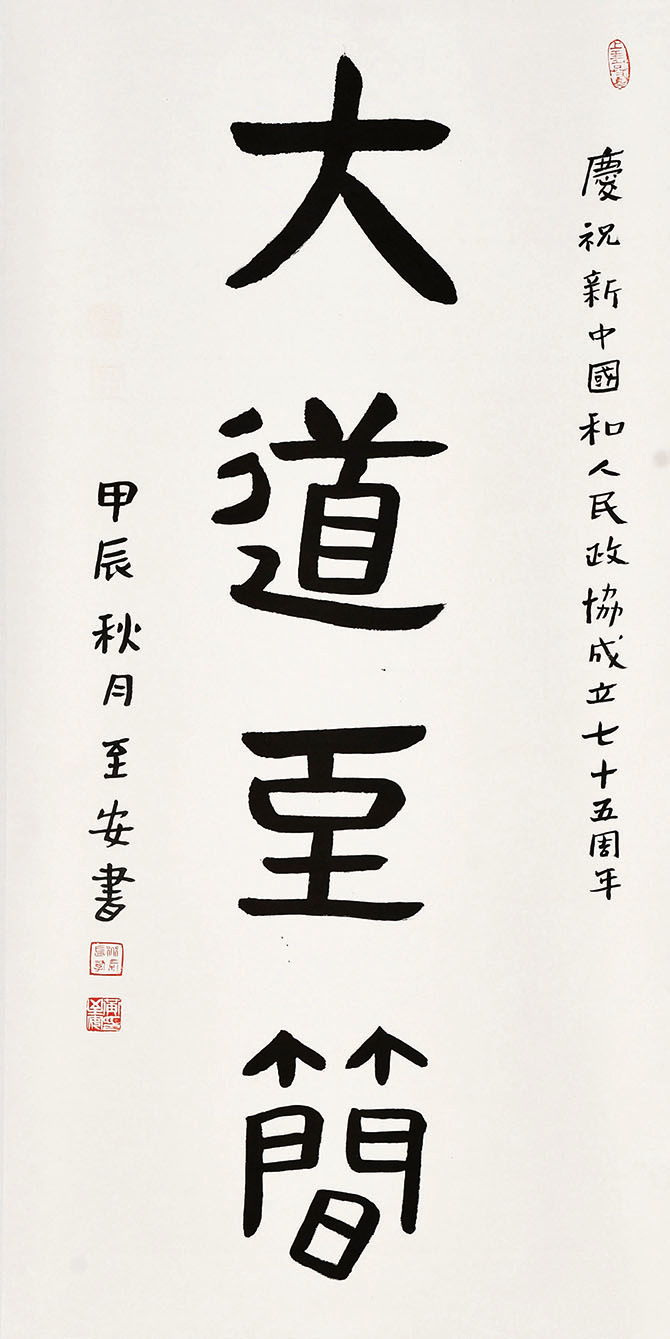 慶祝新中國和人民政協成立七十五周年
大道至簡
甲辰秋月至安書